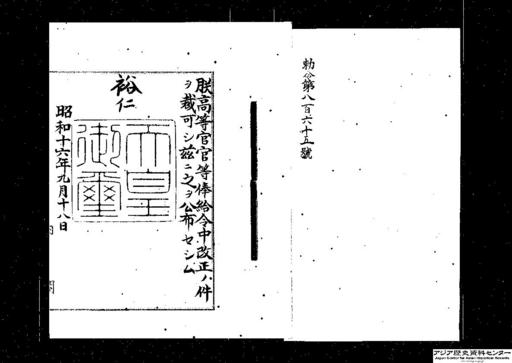 勅令第八百六十五號
朕高等官官等俸給令中改正ノ件
ヲ裁可シ茲ニ之ヲ公布セシム
裕仁
天皇御璽
昭和十六年九月十八日
アジア歴史資料センター
Japan Center for Asian Historical Records